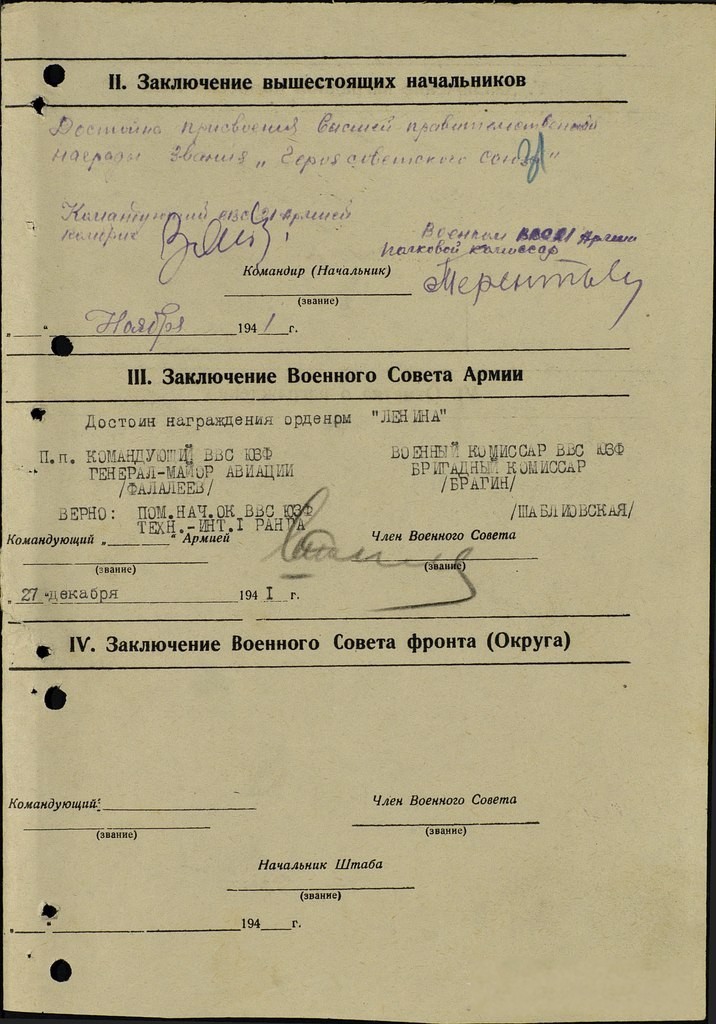 II. Заключение вышестоящих начальников
Достойна присвоения Высшей правительственной
награды звания „Героя советского союза"
Командующий ВВС 21 Армией
комбриг
Военком ВВС 21 Армии
полковой комиссар
Командир (Начальник)
(звание)
„ “ Ноября 1941 г.
III. Заключение Военного Совета Армии
Достоин награждения орденрм "ЛЕНИНА"
П.п. КОМАНДУЮЩИЙ ВВС ЮЗФ ВОЕННЫЙ КОМИССАР ВВС ЮЗФ
ГЕНЕРАЛ-МАЙОР АВИАЦИИ БРИГАДНЫЙ КОМИССАР
/ФАЛАЛЕЕВ/ /БРАГИН/
ВЕРНО: ПОМ.НАЧ.ОК ВВС ЮЗФ
ТЕХН.-ИНТ.I РАНГА /ШАБЛИОВСКАЯ/
Командующий „ “ Армией Член Военного Совета
(звание) (звание)
„27 “ декабря 194 I г.
IV. Заключение Военного Совета фронта (Округа)
Командующий: Член Военного Совета
(звание) (звание)
Начальник Штаба
(звание)
„ “ 194 г.